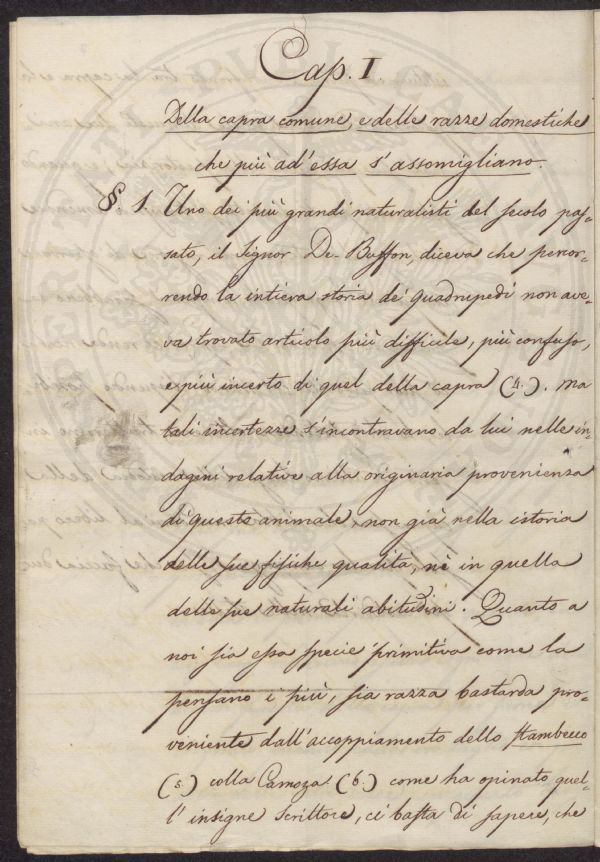 Cap. I.
Della capra comune, e delle razze domestiche
che più ad'essa s'assomigliano.
§ 1. Uno dei più grandi naturalisti del secolo pas-
sato, il Signor De-Buffon, diceva che percor-
rendo la intiera storia de' quadrupedi non ave-
va trovato articolo più difficile, più confuso,
e più incerto di quel della capra (4.). Ma
tali incertezze s'incontravano da lui nelle in-
dagini relative alla originaria provenienza
di questo animale, non già nella istoria
delle sue fisiche qualità, nè in quella
delle sue naturali abitudini. Quanto a
noi sia essa specie primitiva come la
pensano i più, sia razza bastarda pro-
veniente dall'accoppiamento dello stambecco
(5.) colla Camoza (6.) come ha opinato quel-
l'insigne Scrittore, ci basta di sapere, che